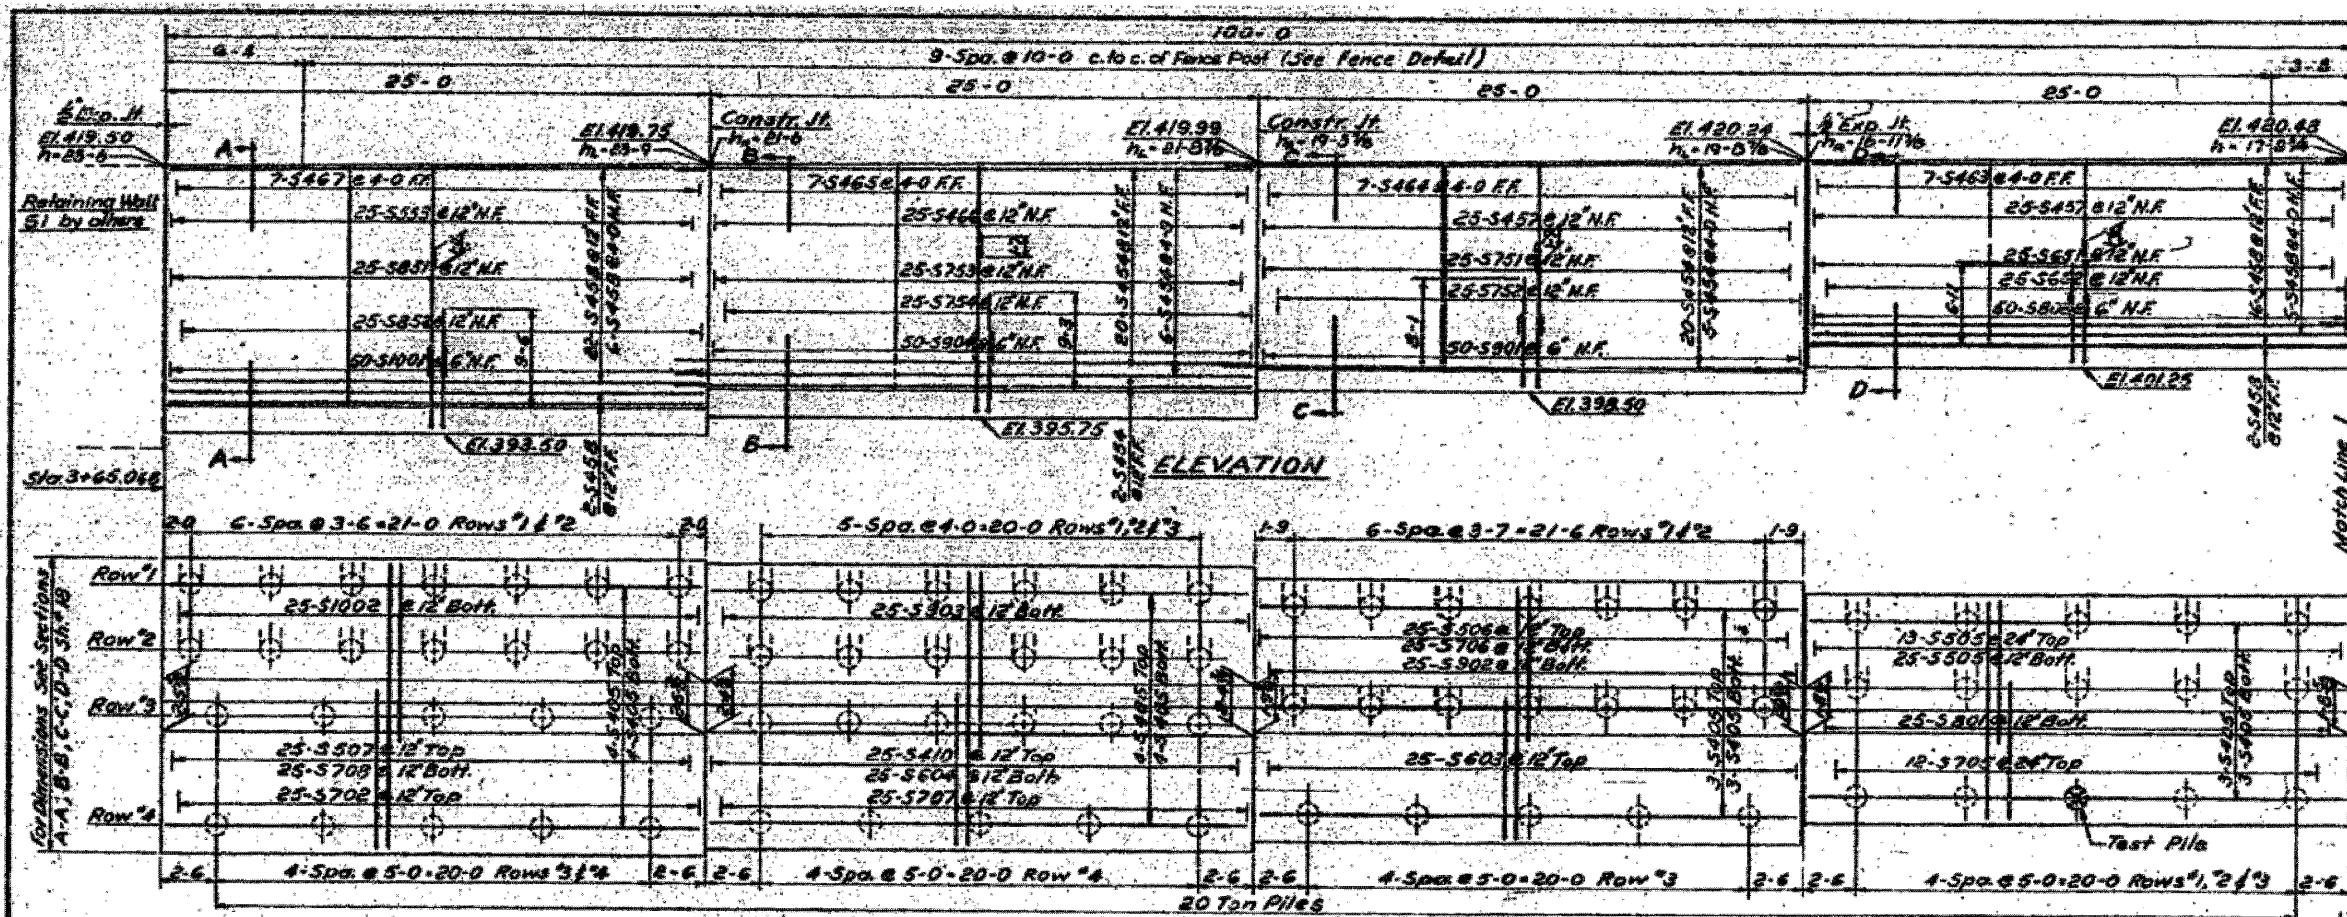 100-0
9-Spa. @ 10-0 c. to c. of Fence Post (See Fence Detail)
3-8
25-0
25-0
25-0
25-0
El. 419.50
h=25-6
Retaining Wall
51 by others
El. 419.75
h_L=23-9
Constr. Jt.
El. 419.99
Constr. Jt.
El. 420.24
Exp. Jt.
El. 420.48
A
B
D
7-S467 @ 4-0 F.F.
25-S553 @ 12" N.F.
25-S851 @ 12" N.F.
25-S852 @ 12" N.F.
50-S1001 @ 6" N.F.
9-6
7-S465 @ 4-0 F.F.
25-S466 @ 12" N.F.
25-S753 @ 12" N.F.
25-S754 @ 12" N.F.
50-S904 @ 6" N.F.
9-3
20-S454 @ 12" F.F.
7-S464 @ 4-0 F.F.
25-S457 @ 12" N.F.
25-S751 @ 12" N.F.
25-S752 @ 12" N.F.
50-S901 @ 6" N.F.
8-1
20-S454 @ 12" F.F.
7-S463 @ 4-0 F.F.
25-S457 @ 12" N.F.
25-S651 @ 12" N.F.
25-S652 @ 12" N.F.
50-S802 @ 6" N.F.
6-11
2-S453
@ 12" F.F.
El. 393.50
El. 395.75
El. 398.50
El. 401.25
A
B
C
D
2-S454
@ 12" F.F.
ELEVATION
Match Line
2-0
6-Spa. @ 3-6=21-0 Rows #1 & #2
2-0
5-Spa. @ 4-0=20-0 Rows #1, #2 & #3
1-9
6-Spa. @ 3-7=21-6 Rows #1 & #2
1-9
For Dimensions See Sections
A-A, B-B, C-C, D-D Sh. #18
Row #1
Row #2
Row #3
Row #4
25-S1002 @ 12" Bott.
4-S405 Top
4-S405 Bott.
25-S507 @ 12" Top
25-S708 @ 12" Bott.
25-S702 @ 12" Top
25-S903 @ 12" Bott.
4-S405 Top
4-S405 Bott.
25-S410 @ 12" Top
25-S604 @ 12" Bott.
25-S707 @ 12" Top
25-S506 @ 12" Top
25-S706 @ 12" Bott.
25-S902 @ 12" Bott.
3-S405 Top
3-S405 Bott.
25-S603 @ 12" Top
13-S505 @ 24" Top
25-S505 @ 12" Bott.
25-S801 @ 12" Bott.
3-S405 Top
3-S405 Bott.
12-S705 @ 24" Top
Test Pile
2-6
4-Spa. @ 5-0=20-0 Rows #3 & #4
2-6
2-6
4-Spa. @ 5-0=20-0 Row #4
2-6
2-6
4-Spa. @ 5-0=20-0 Row #3
2-6
2-6
4-Spa. @ 5-0=20-0 Rows #1, #2 & #3
2-6
20 Ton Piles